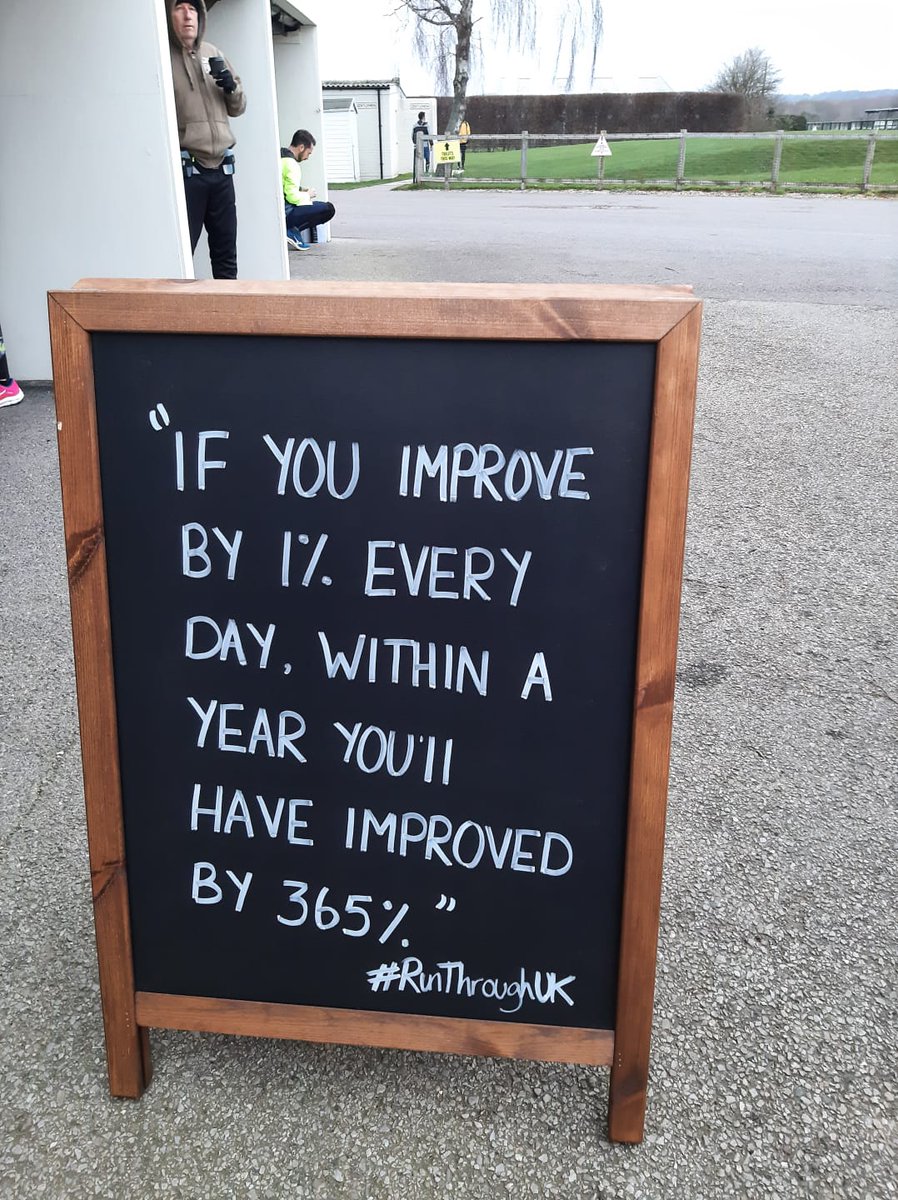 GENTLEMEN
TOILETS
THIS WAY
"IF YOU IMPROVE
BY 1% EVERY
DAY, WITHIN A
YEAR YOU'll
HAVE IMPROVED
BY 365%."
#RunThroughUK